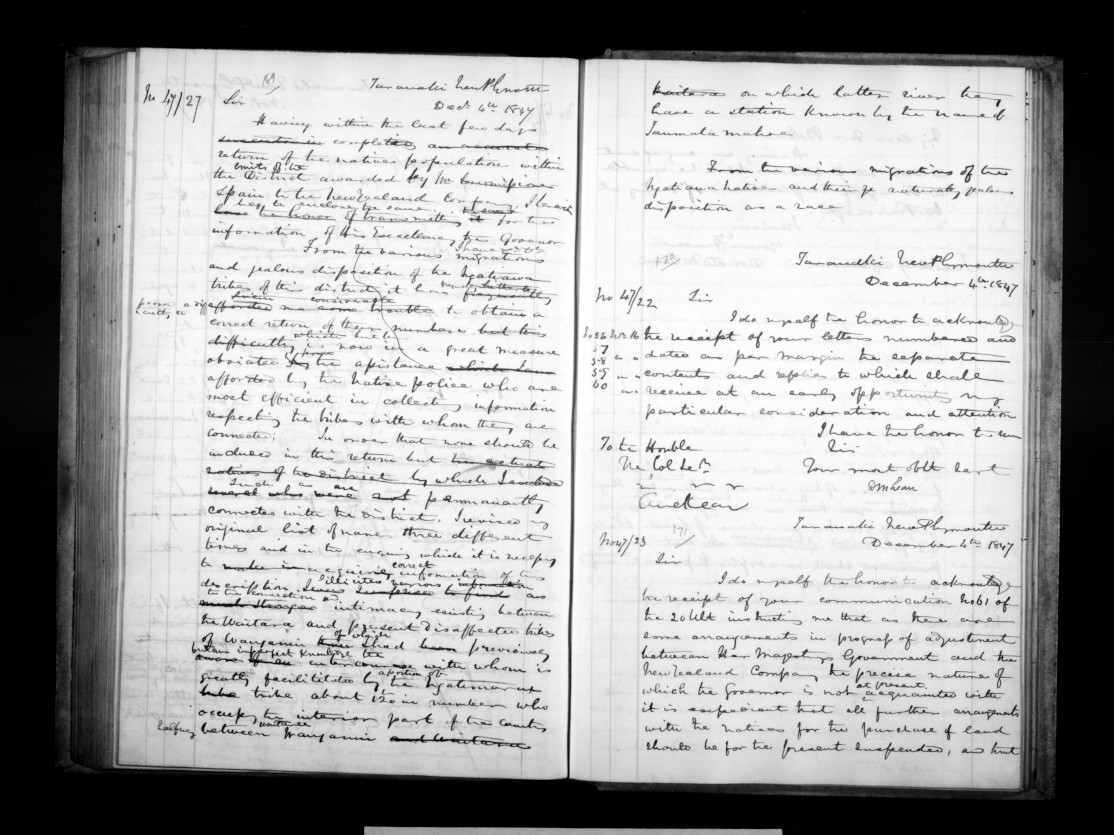 169/
Taranaki New Plymouth
Decr 4th 1847
No 47/27
Sir
Having within the last few days
completed, an accurate
return of the natives population within
limits of the
the District awarded by Mr Commissioner
Spain to the New Zealand Company; I
beg to enclose the same
have the honor of transmitting it for the
information of His Excellency the Governor
From the various migrations
and jealous disposition of the Ngatiawa
tribes of this district it has frequently
given considerable
afforded me some trouble to obtain a
correct return of their numbers but this
difficulty is now in a great measure
obviated by the assistance
afforded by the Native police who are
most efficient in collecting information
respecting the tribes with whom they are
connected. In order that none should be
included in this return but the actual
natives of the district by which
Such as are
several who were not permanently
connected with the District. I revised my
original list of names three different
times and in the enquiry which it is necessary
correct
to make in acquiring information of this
description I elicited various information as
to the connection &
much stronger intimacy existing between
the Waitara and present disaffected tribes
of which
of Wanganui than I had been previously
but an imperfect knowledge the
aware of an intercourse with whom is
a portion of
greatly facilitated by the Ngatimaru
tribe about 120 in number who
occupy the interior part of the country
Waitara
halfway between Wanganui and Waitara
Waitara on which latter river they
have a station known by the name of
Taumatamahoe
From the various migrations of the
Ngatiawa natives and their naturally jealous
disposition as a race
170/
Taranaki New Plymouth
December 4th 1847
No 47/22 Sir
I do myself the honor to acknowledge
No 56 Novr 16 the receipt of your letters numbered and
57 " " dated as per margin the separate
58 " "
59 " " contents and replies to which shall
60 " " receive at an early opportunity my
particular consideration and attention
I have the honor to be
To the Honble Sir
The Col Secy Your most obt Servt
" " " D McLean
Auckland
Taranaki New Plymouth
171/
December 4th 1847
No 47/23
Sir
I do myself the honor to acknowledge
the receipt of your communication No 61 of
the 20 Ult instructing me that as there are
some arrangements in progress of adjustment
between Her Majestys Government and the
New Zealand Company the precise nature of
at present
which the Governor is not acquainted with
it is expedient that all further arrangements
with the natives for the purchase of land
should be for the present suspended, and that